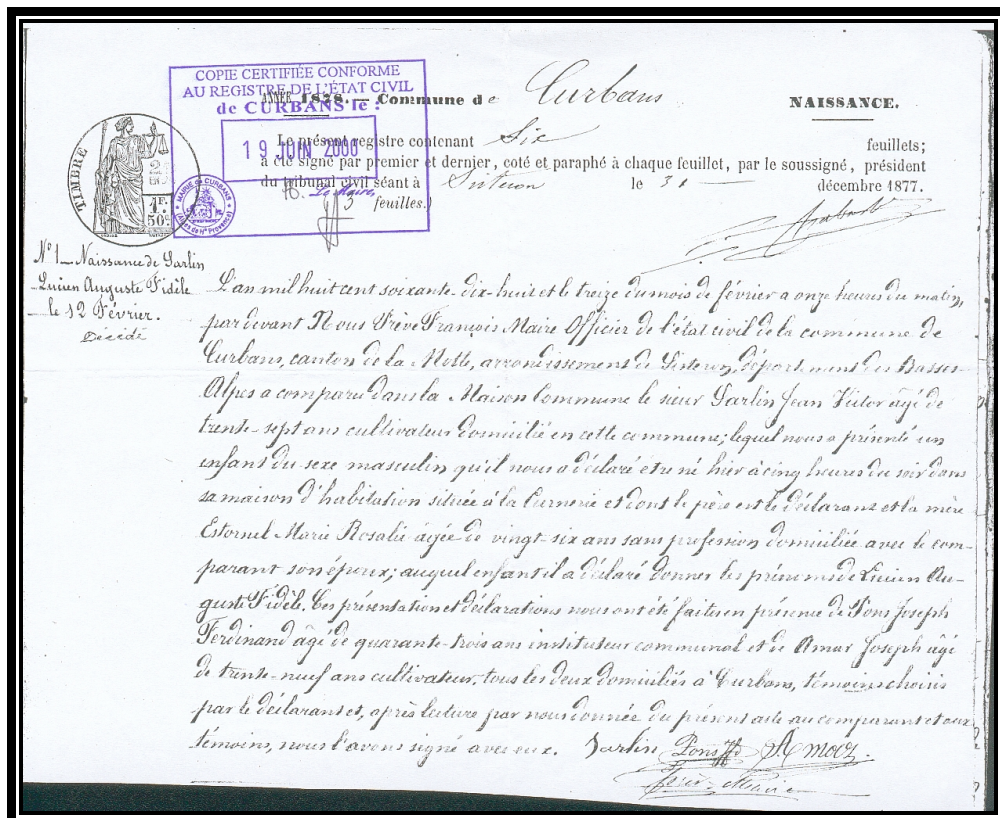 COPIE CERTIFIÉE CONFORME
AU REGISTRE DE L'ÉTAT CIVIL
de CURBANS le :
19 JUIN 2000
Le Maire
ANNÉE 1878. Commune de Curbans
NAISSANCE.
Le présent registre contenant Six feuillets;
a été signé par premier et dernier, coté et paraphé à chaque feuillet, par le soussigné, président
du tribunal civil séant à Sisteron le 31 décembre 1877.
3 feuilles.)
TIMBRE
1F.
50c
MAIRIE de CURBANS
(Alpes de Hte Provence)
N° 1 _ Naissance de Sarlin
Lucien Auguste Fidèle
le 12 Février.
Décédé
L'an mil huit cent soixante-dix-huit et le treize du mois de février a onze heures du matin,
par devant Nous Frève François Maire Officier de l'état civil de la commune de
Curbans, canton de la Motte, arrondissement de Sisteron, département des Basses-
Alpes a comparu dans la Maison Commune le sieur Sarlin Jean Victor âgé de
trente-sept ans cultivateur domicilié en cette commune; lequel nous a présenté un
enfant du sexe masculin qu'il nous a déclaré être né hier à cinq heures du soir dans
sa maison d'habitation située à la Curnerie et dont le père est le déclarant et la mère
Estornel Marie Rosalie âgée de vingt six ans sans profession domiciliée avec le com-
parant son époux; auquel enfant il a déclaré donner les prénoms de Lucien Au-
guste Fidèle. Ces présentation et déclarations nous ont été faites en présence de Pons Joseph
Ferdinand âgé de quarante-trois ans instituteur communal et de Amar Joseph âgé
de trente-neuf ans cultivateur, tous les deux domiciliés à Curbans, témoins choisis
par le déclarant et, après lecture par nous donnée du présent acte au comparant et aux
témoins, nous l'avons signé avec eux. Sarlin Pons Jh Amar
Maire